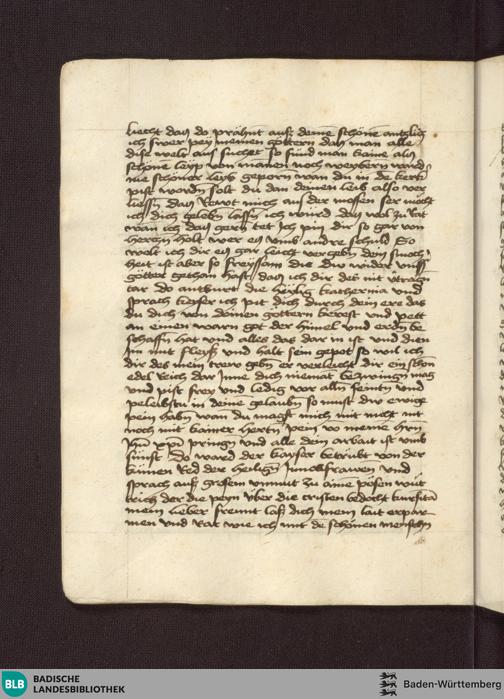 liecht daz do präht auß deine schöne antzlicz
ich swer pey meinen göttern daz man alle
dise welt auß suchet so fünd man kaine als
schöne leyp von mannen noch weybern ward
nie schöner leyb geporn wan du in de kerk
pist wordn solt du dan deinen leib also ver
liessn daz Rewt mich auß der massen ser möcht
ich dich gelebn lassn ich würd daz wol zu Rat
wan ich daz gern tet Ich pin dir so gar von
herczn holt wer es vmb andre schuld So
wolt ich dir es gar leicht vergebn dein smoch
heit ist aber so freyssam die du wider vnß
götter gethan hast daz ich dir des nit vtragn
tar do antwurt die heylig katherina vnd
sprach keyser ich pit dich durch dein ere das
du dich von deinen göttern kerest vnd pett
an einen warn got der himel vnd erdn be
schaffn hat vnd alles das dar in ist vnd dien
im mit fleyß vnd halt sein gepot so wil ich
dir des mein trew gebn er verleicht dir ein schön
edel Reich dar Inne dich niemat bezwingn mag
vnd pist frey vnd ledig vor alln feintn vnd
peleibstu in deine gelaubn so must du ewige
pein habn wan du magst mich mit nicht mit
noch mit kainer hertn pein vo meine hrn
Jhu xpo pringn vnd alle dein arbait ist vmb
sünst Do ward der kayser betrübt von der
künen Red der heilign Junckfrawen vnd
sprach auß grosem vnmut zu aine pösen wüt
trich der die peyn über die cristen bedocht kursita
mein lieber freunt laß dich mein lait erpar
men vnd Rat wie ich mit de schönen menschn
BLB BADISCHE
LANDESBIBLIOTHEK
Baden-Württemberg